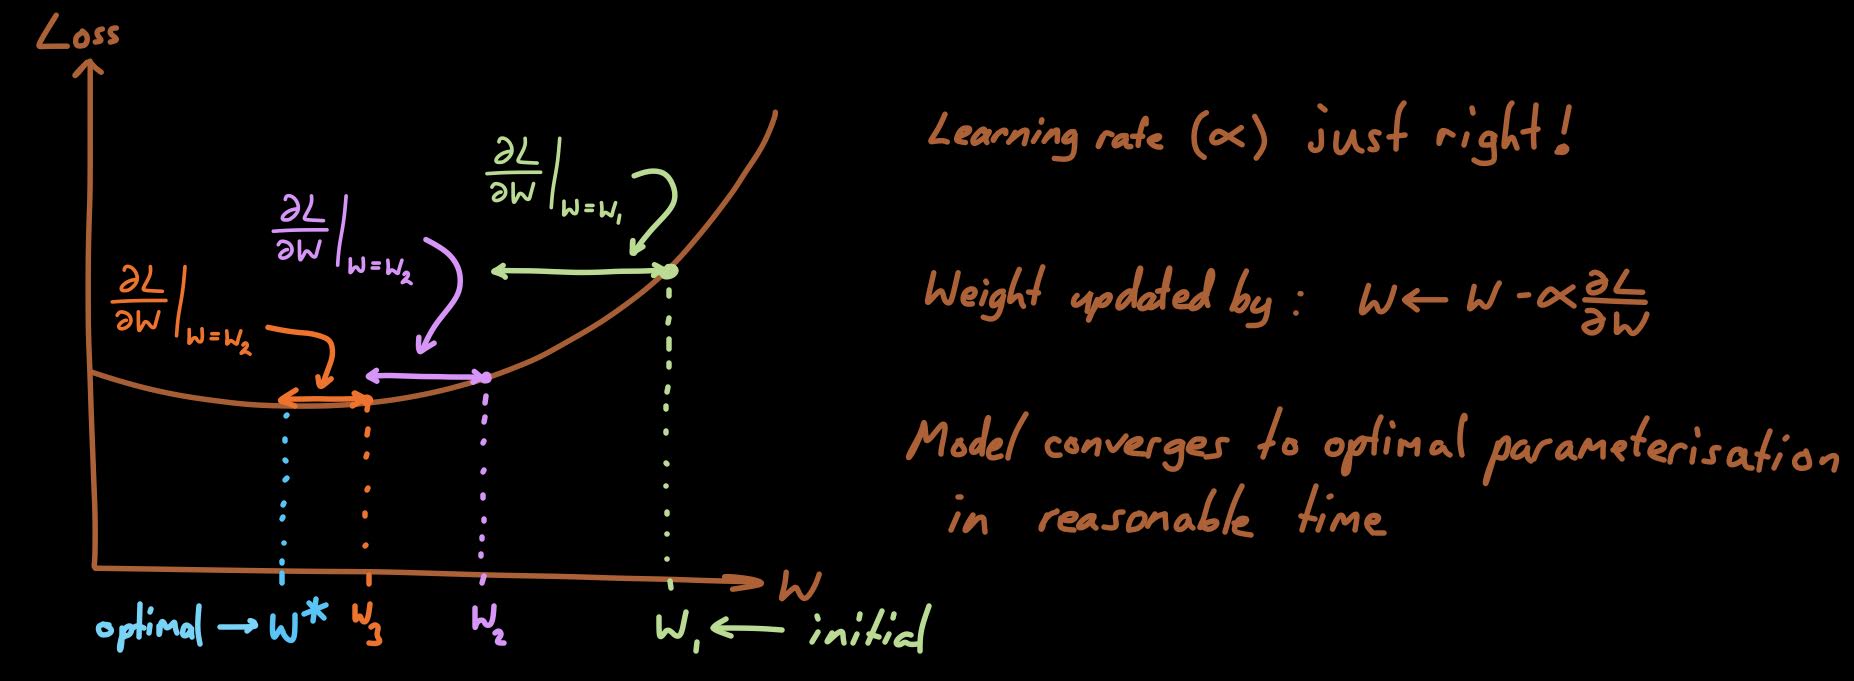 Loss
∂L/∂W |W=W₁
∂L/∂W |W=W₂
∂L/∂W |W=W₂
W
optimal → W*
W₃
W₂
W₁ ← initial
Learning rate (α) just right!
Weight updated by: W ← W - α ∂L/∂W
Model converges to optimal parameterisation
in reasonable time